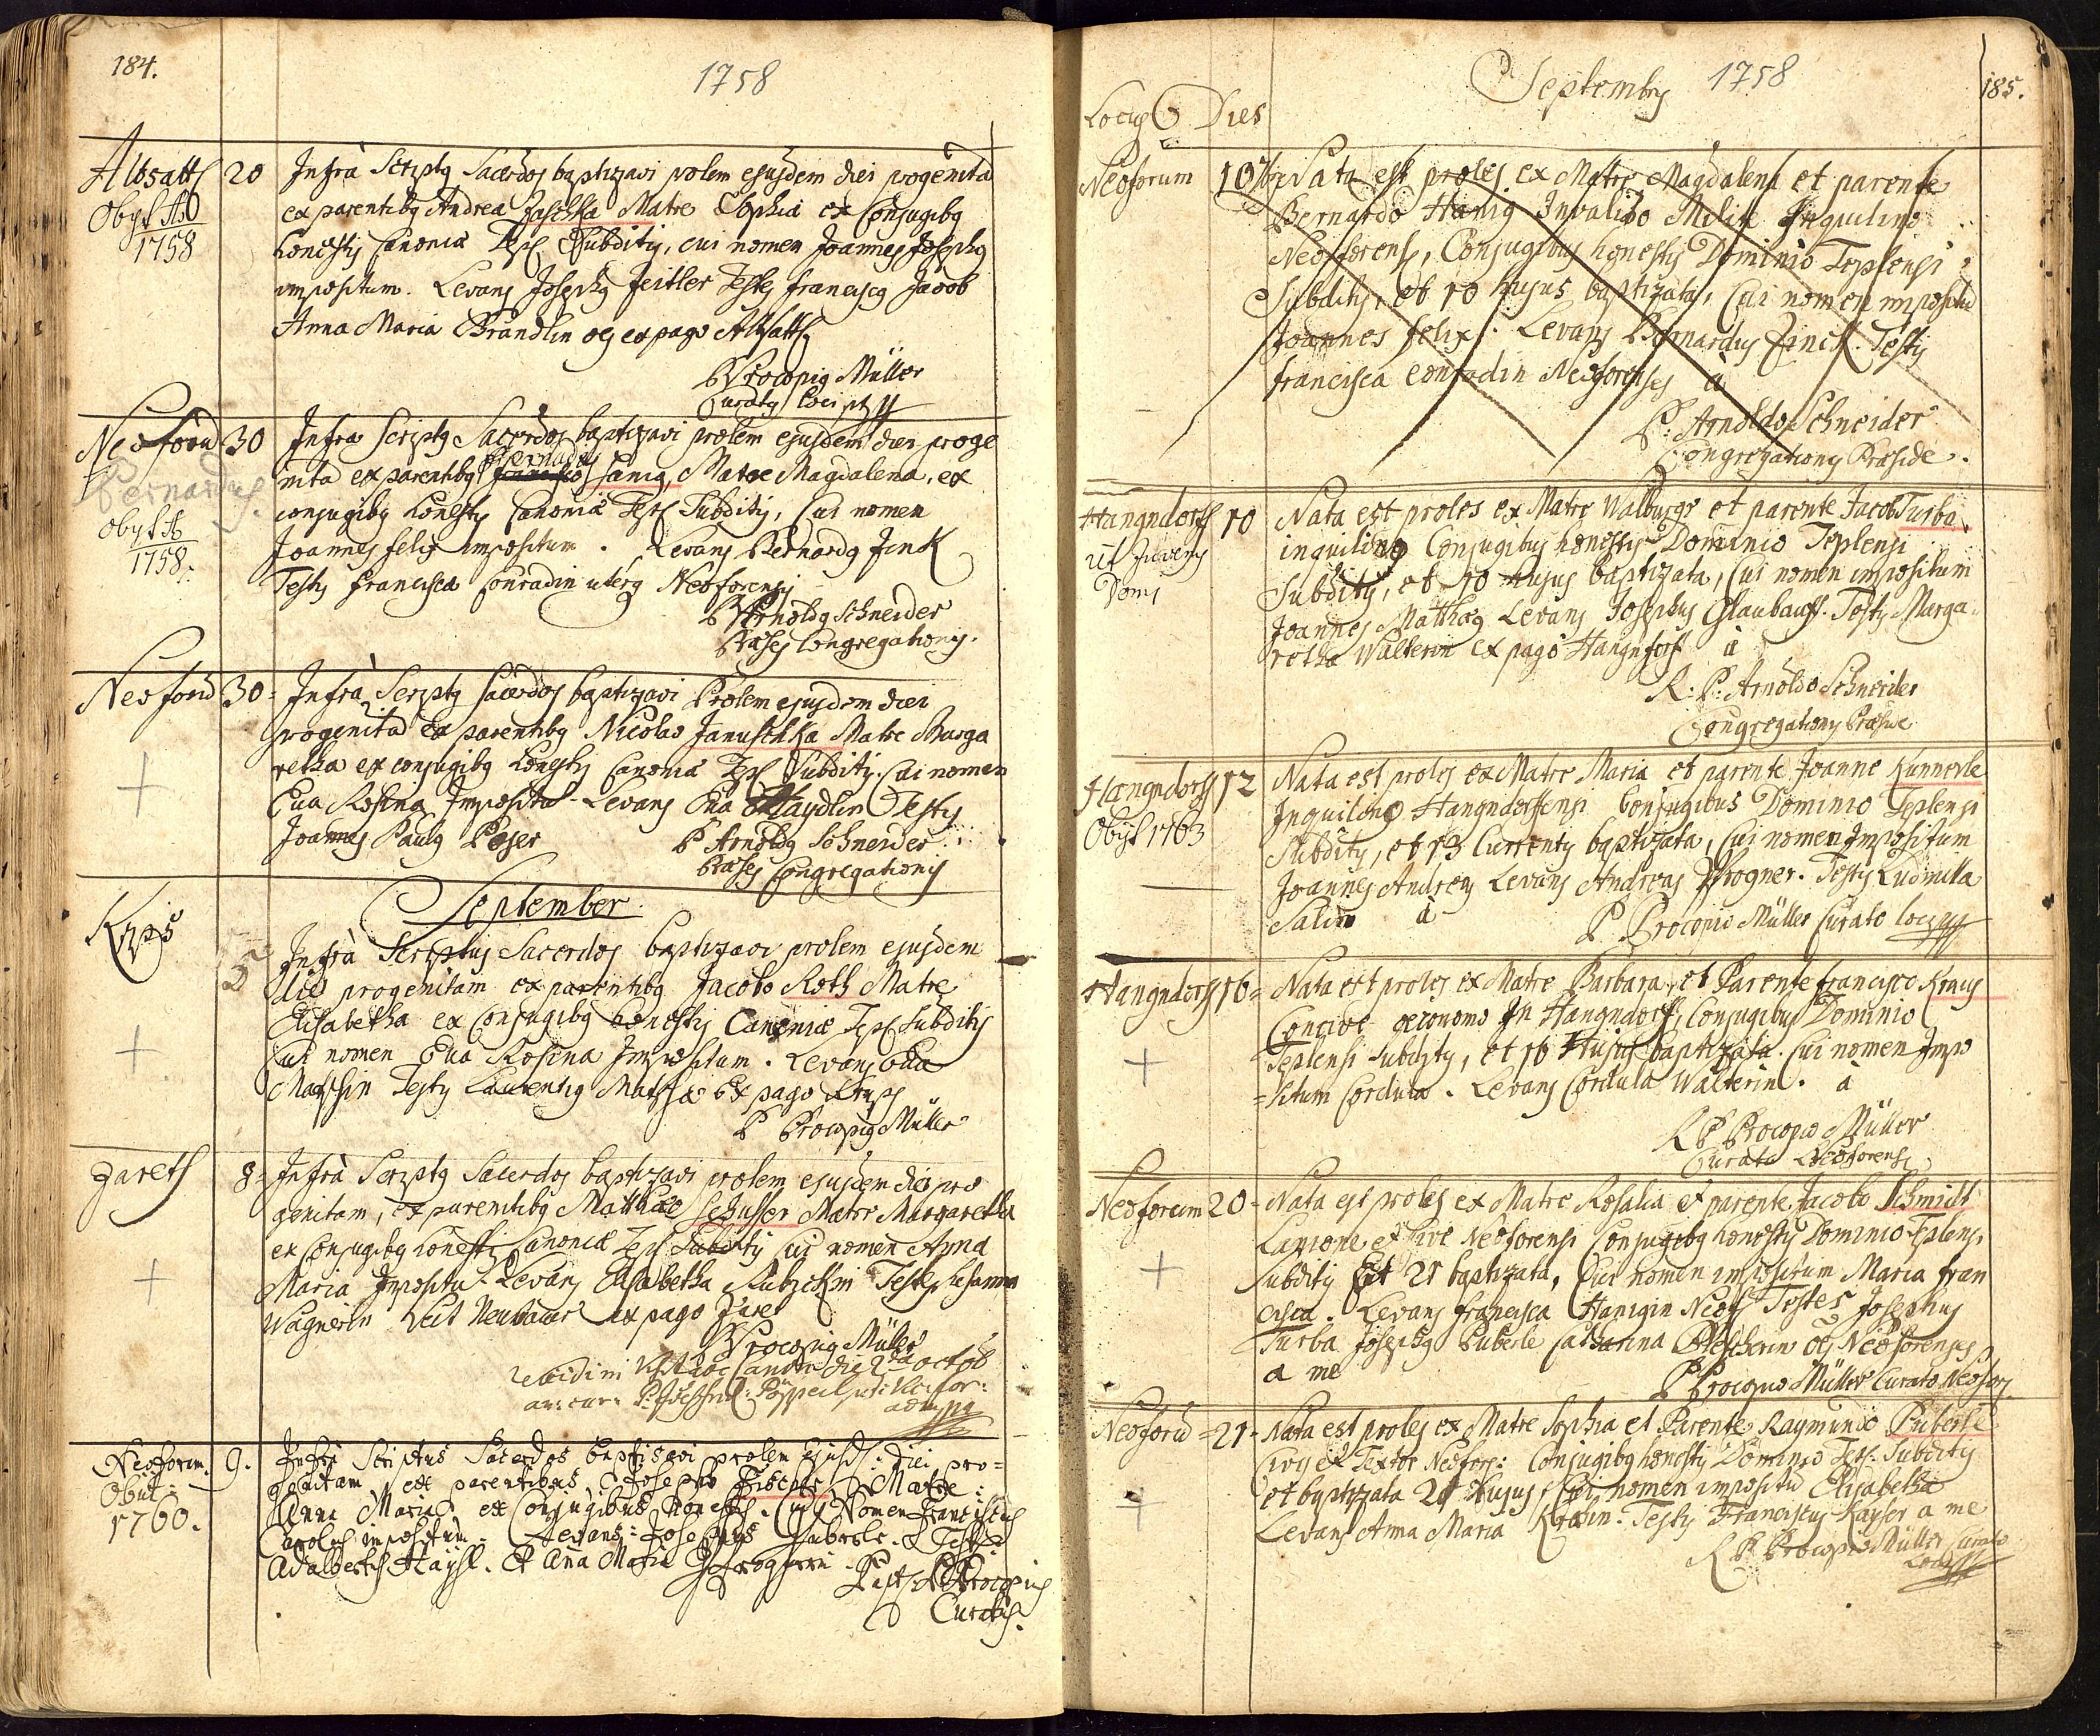 184.
1758
Altsattl 20 Infrà Scriptg Sacerdos baptizavi prolem ejusdem diei progenita
Obyt Ao ex parentibg Andrea Jaschka Matre Sophia ex Conjugibg
1758 honestis Canoniæ Tepl Subditis, cui nomen Joannes Josephg
impositum. Levans Josephg Zeitler Testes franciscg Jacob
Anna Maria Brandlin oes ex pago Altsattl
P Procopig Müller
Curatg loci
Neoforu 30 Infra Scriptg Sacerdos baptizavi prolem ejusdem diei proge
Bernardus
nita ex parentibg Hanig, Matre Magdalena, ex
Bernardus
Obyt Ao conjugibg honestis Canoniæ Tepl Subditis, Cui nomen
1758. Joannes felix impositum. Levans Bernardg Zink
Testis francisca Conradin uterq Neoforensis
P Arnoldg Schneider
Præses Congregationis.
Neoforu 30 Infrà Scriptg Sacerdos baptizavi Prolem ejusdem diei
progenitā ex parentibg Nicolao Januschka Matre Marga
retha ex conjugibg honestis Canoniæ Tepl Subditis. Cui nomen
Eva Rosina Impositu Levans Eva Haydlin Testis
Joannes Paulg Peser P Arnoldg Schneider
Præses Congregationis
September
Krps
5 Infrà Scriptus Sacerdos baptizavi prolem ejusdem
diei progenitam ex parentibg Jacobo Roth Matre
Elisabetha ex Conjugibg honestis Canoniæ Tepl Subditis
cui nomen Eva Rosina Impositum. Levans Eva
Testis Laurentig ex pago
P Procopig Müller
Zareth 8 Infrà Scriptg Sacerdos baptizavi prolem ejusdem diei pro
genitam, ex parentibg Matthæo Schusser Matre Margaretha
ex Conjugibg honestis Canoniæ Tepl Subditis Cui nomen Anna
Maria Impositu Levans Elisabetha Testes Susanna
Wagnerin Veit Neubauer ex pago Zaret
P Procopig Müller
die 2da octob
Neoforum. 9. Infra Scriptus Sacerdos baptisavi prolem ejusd: diei pro=
Obiit: genitam ex parentibus Josepho Fischer Matre:
1760. Anna Maria: ex Conjugibus honestis. Cui Nomen Franciscus
Carolus impositum. Levans: Josephus Puberle. Testes
Adalbertus Haysl. Et Aña Maria
Procopius
Curatus.
Septembris 1758
185.
Locus Dies
Neoforum 10 Nata est proles ex Matre Magdalena et parente
Bernardo Hanig Invalido Milite Inquilino
Neoforensi, Conjugibus honestis Dominio Teplensi
Subditis, et 10 hujus baptizata, Cui nomen impositū
Joannes felix. Levans Bernardus Zinck. Testis
francisca Conradin Neoforenses à
P: Arnoldo Schneider
Congregationis Præside.
Hangndorff 10 Nata est proles ex Matre Walburga et parente Jacob Turba
inquilino Conjugibus honestis Dominio Teplensi
Subditis, et 10 hujus baptizata, Cui nomen impositum
Joannes Matthæg Levans Josephus Glaubauff. Testis Marga
retha Walterin ex pago Hangndorff à
R: P: Arnoldo Schneider
Congregationis Præside
Hangndorff 12 Nata est proles ex Matre Maria et parente Joanne Kunnerle
Obyt 1763 Inquilino Hangndorffensi Conjugibus Dominio Teplensi
Subditis, et 13 Currentis baptizata, Cui nomen Impositum
Joannes Andreas Levans Andreas Progner. Testis Ludmilla
Salin à P. Procopio Müller Curato loci
Hangndorff 16 Nata est proles ex Matre Barbara, et Parente francisco Kraus
Concive œconomo In Hangndorff, Conjugibus Dominio
Teplensi Subditis, et 16 Hujus baptizata. Cui nomen Impo
=situm Cordula. Levans Cordula Walterin. à
R P Procopio Müller
Curato Neoforensi
Neoforum 20 Nata est proles ex Matre Rosalia et parente Jacobo Schmidt
Lanione et Cive Neoforensi Conjugibg honestis Dominio Teplensi
Subditis Et 21 baptizata, Cui nomen impositum Maria fran
cisca. Levans francisca Hanigin Neof: Testes Josephus
Turba Josephg Puberle Catharina oes Neoforenses
a me P Procopio Müller Curato Neofor
Neoforū 21 Nata est proles ex Matre Sophia et Parente Raymundo Puberle
Cive et Textor Neofor: Conjugibg honestis Dominio Tepl: Subditis
et baptizata 21 hujus, Cui nomen impositū Elisabetha
Levans Anna Maria Testis Franciscus Kayser a me
R P Procopio Müller Curato
Loci